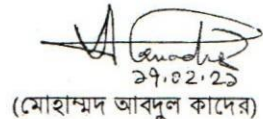 ২৭.০২.২৯
(মোহাম্মদ আবদুল কাদের)